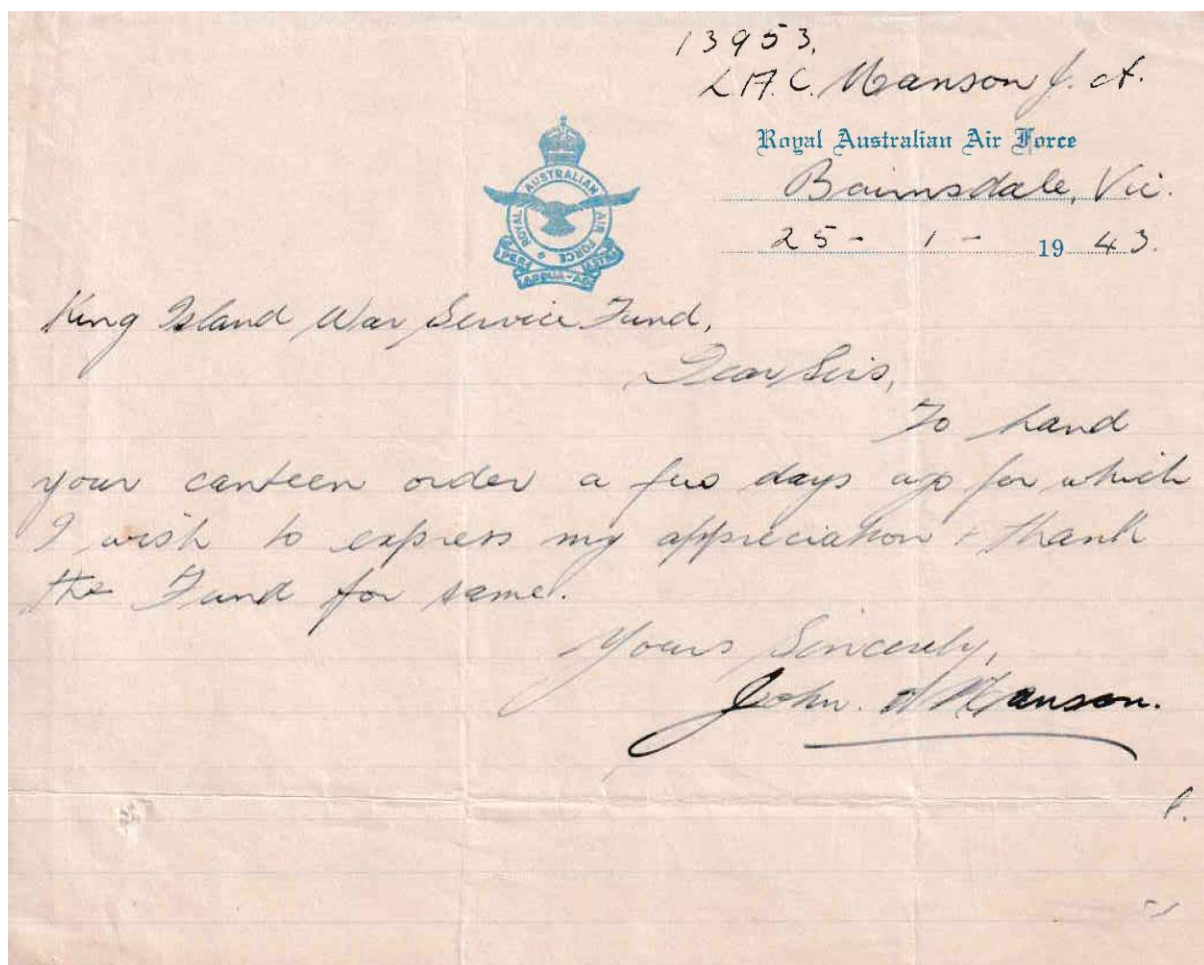 13953.
L.A.C. Manson J. A.
Royal Australian Air Force
Bairnsdale, Vic.
25 - 1 - 1943.
ROYAL AUSTRALIAN AIR FORCE
PER ARDUA AD ASTRA
King Island War Service Fund,
Dear Sirs,
To hand
your canteen order a few days ago for which
I wish to express my appreciation & thank
the Fund for same.
Yours Sincerely,
John. A Manson.